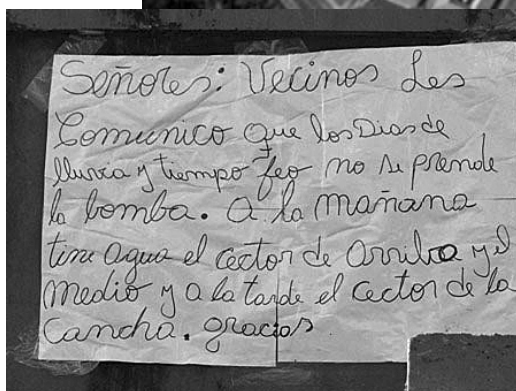 Señores: Vecinos Les
Comunico que los Dias de
lluvia y tiempo feo no se prende
la bomba. A la mañana
tine agua el cector de Arriba y el
medio y a la tarde el cector de la
Cancha. gracias